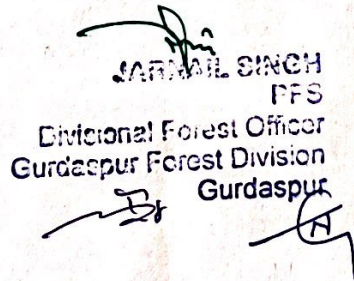 JARMAIL SINGH
PFS
Divisional Forest Officer
Gurdaspur Forest Division
Gurdaspur